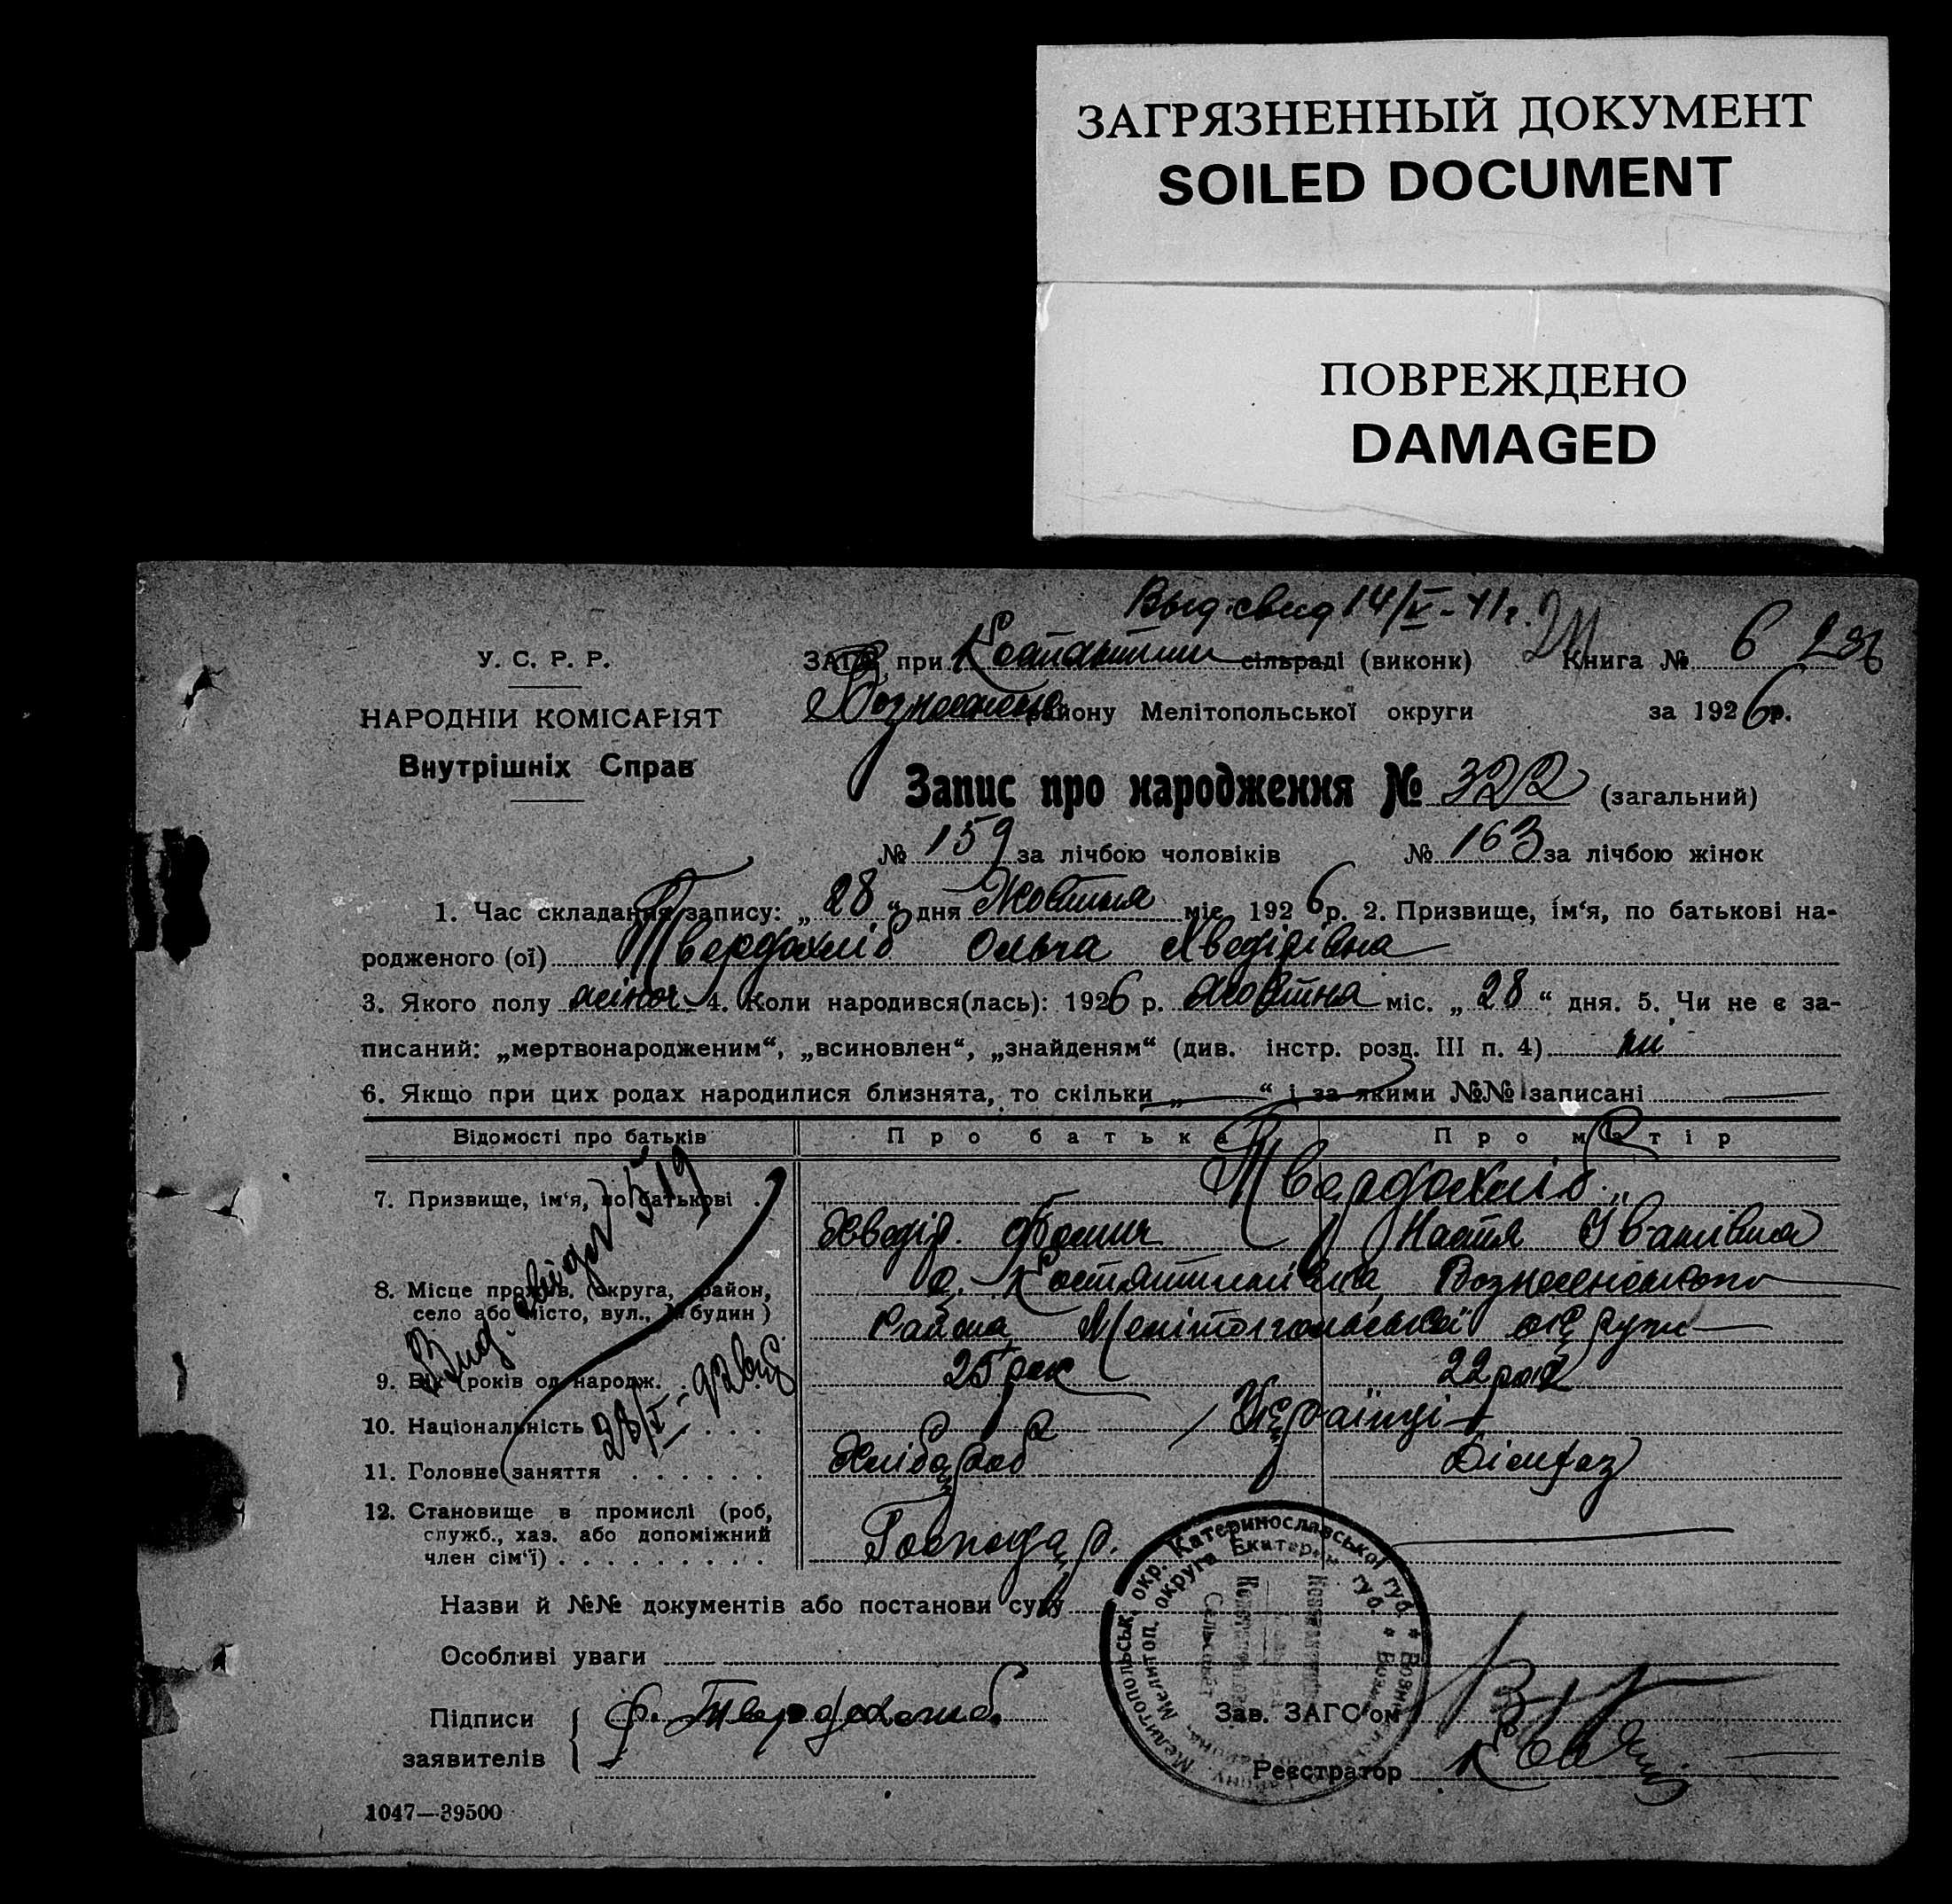 ЗАГРЯЗНЕННЫЙ ДОКУМЕНТ
SOILED DOCUMENT
ПОВРЕЖДЕНО
DAMAGED
Выд. свид 14/V-41г.
У. С. Р. Р.
ЗАГС при сільраді (виконк) Книга № 6 236
НАРОДНІЙ КОМІСАРІЯТ
району Мелітопольської округи за 1926р.
Внутрішніх Справ
Запис про народження № 322 (загальний)
№ 159 за лічбою чоловіків № 163 за лічбою жінок
1. Час складання запису: „28“ дня Жовтня міс. 1926р. 2. Призвище, ім‘я, по батькові на-
родженого (ої) Твердохліб Ольга Хведірівна
3. Якого полу жіноч. 4. Коли народився(лась): 1926 р. Жовтня міс. „28“ дня. 5. Чи не є за-
писаний: „мертвонародженим“, „всиновлен“, „знайденям“ (див. інстр. розд. III п. 4) ні
6. Якщо при цих родах народилися близнята, то скільки „—“ і за якими №№ записані —
Відомості про батьків Про батька Про матір
7. Призвище, ім‘я, по батькові . Твердохліб
Хведір Хомич Настя Іванівна
8. Місце прожив. (округа, район, с. Костянтинівка, Вознесенського
село або місто, вул., № будин) района Мелітопольської округи
9. Вік (років од народж. 25 рок 22 рок
10. Національність . . . Українці
11. Головне заняття . . . . . . Хлібороб
12. Становище в промислі (роб,
служб., хаз. або допоміжний Господар. —
член сім‘ї) . . . . . . . . .
Назви й №№ документів або постанови суду
Особливі уваги
Підписи Ф. Твердохліб. Зав. ЗАГС‘ом
заявителів
Реєстратор
1047—39500
Мелитопольськ. окр. Катеринославської губ.